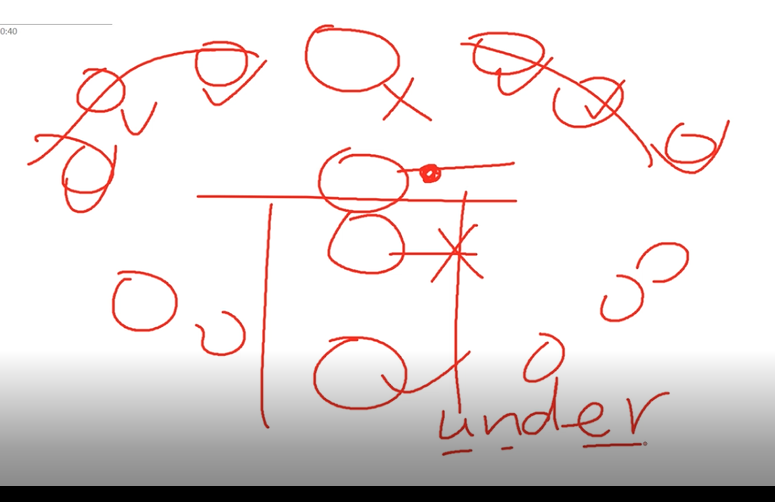 0:40
under